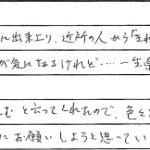 に出来上り、近所の人から「きれ
が気になるけれど‥‥一生
む と云ってくれたので、色々
にお願いしようと思ってい